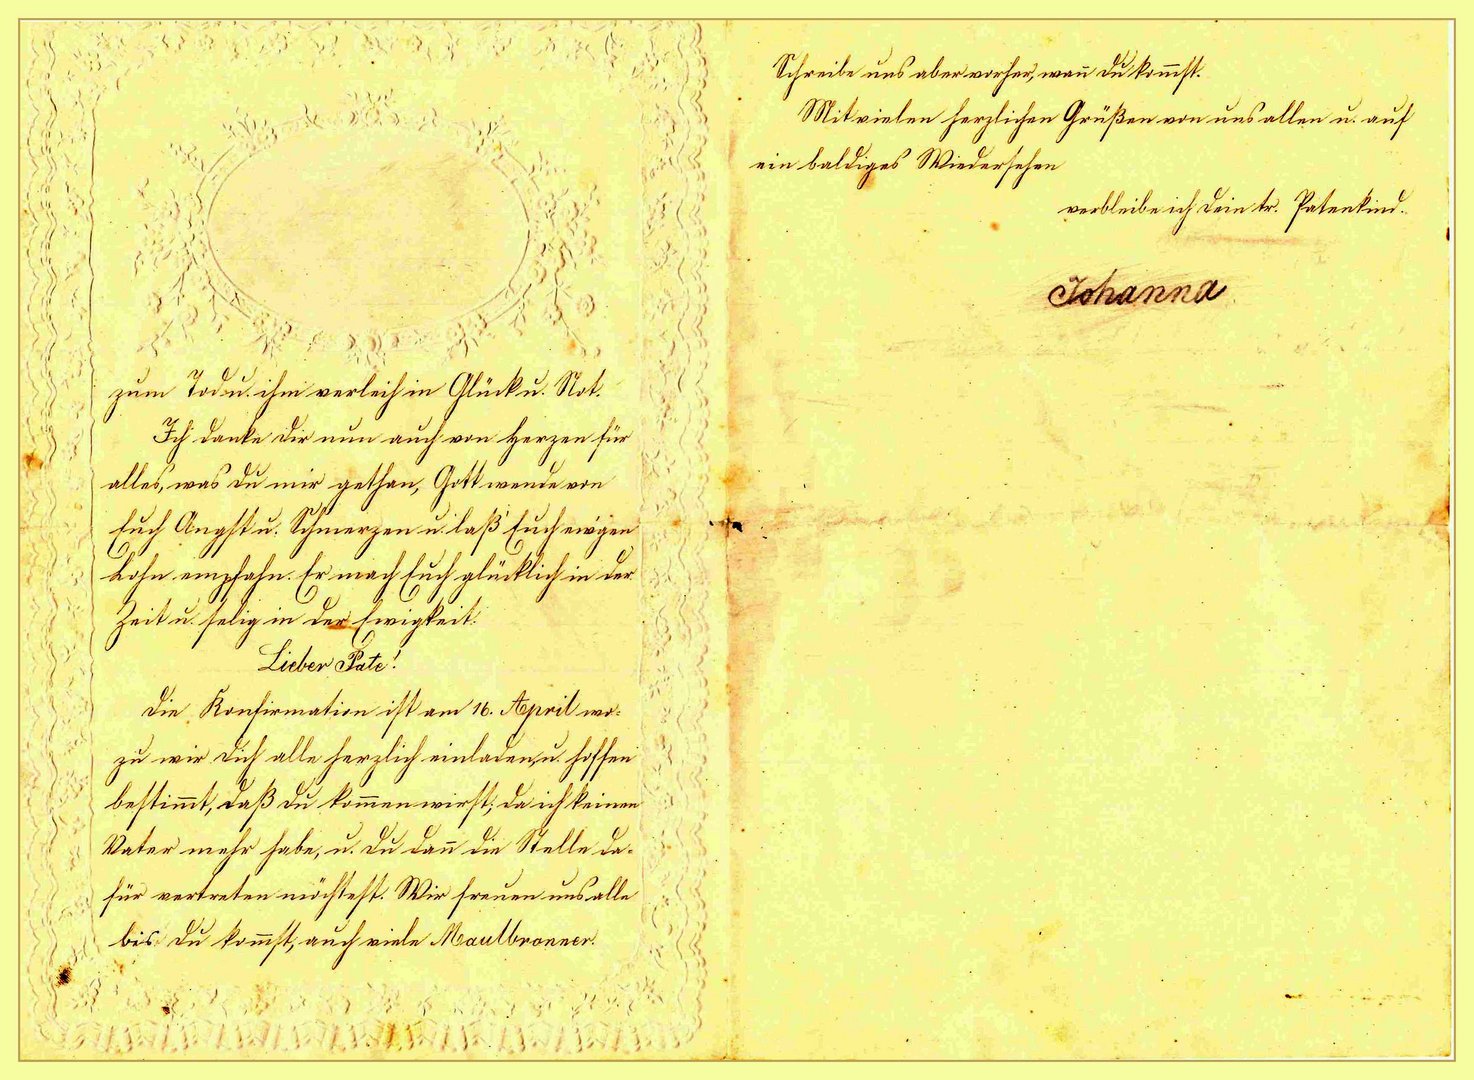 zum Tod u. ihm verleih in Glück u. Not.
Ich danke dir nun auch von Herzen für
alles, was du mir gethan, Gott wende von
Euch Angst u. Schmerzen u. laß Euch ew'gen
Lohn empfahn. Er mach Euch glücklich in der
Zeit u. selig in der Ewigkeit.
Lieber Pate!
Die Konfirmation ist am 16. April wo-
zu wir dich alle herzlich einladen, u. hoffen
bestim̅t, daß du kom̅en wirst, da ich keinen
Vater mehr habe, u. du dan̅ die Stelle da-
für vertreten möchtest. Wir freuen uns alle
bis du kom̅st, auch viele Maulbronner.
Schreibe uns aber vorher, wan̅ du kom̅st.
Mit vielen herzlichen Grüßen von uns allen u. auf
ein baldiges Wiedersehen
verbleibe ich dein tr. Patenkind.
Johanna